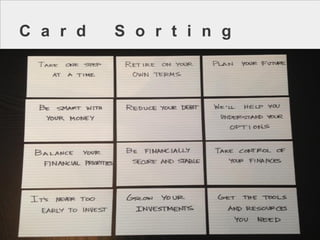 Card Sorting
TAKE ONE STEP
AT A TIME
RETIRE ON YOUR
OWN TERMS
PLAN YOUR FUTURE
BE SMART WITH
YOUR MONEY
REDUCE YOUR DEBT
WE'LL HELP YOU
UNDERSTAND YOUR
OPTIONS
BALANCE YOUR
FINANCIAL PRIORITIES
BE FINANCIALLY
SECURE AND STABLE
TAKE CONTROL OF
YOUR FINANCES
IT'S NEVER TOO
EARLY TO INVEST
GROW YOUR
INVESTMENTS
GET THE TOOLS
AND RESOURCES
YOU NEED